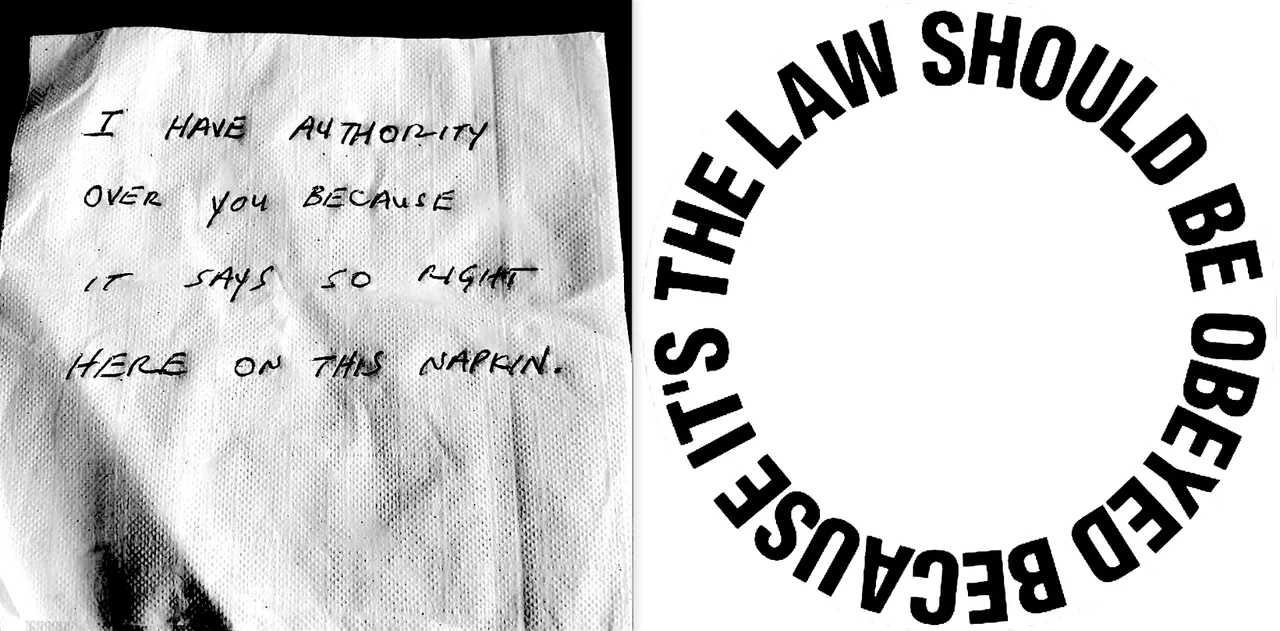 I HAVE AUTHORITY
OVER YOU BECAUSE
IT SAYS SO RIGHT
HERE ON THIS NAPKIN.
THE LAW SHOULD BE OBEYED BECAUSE IT'S